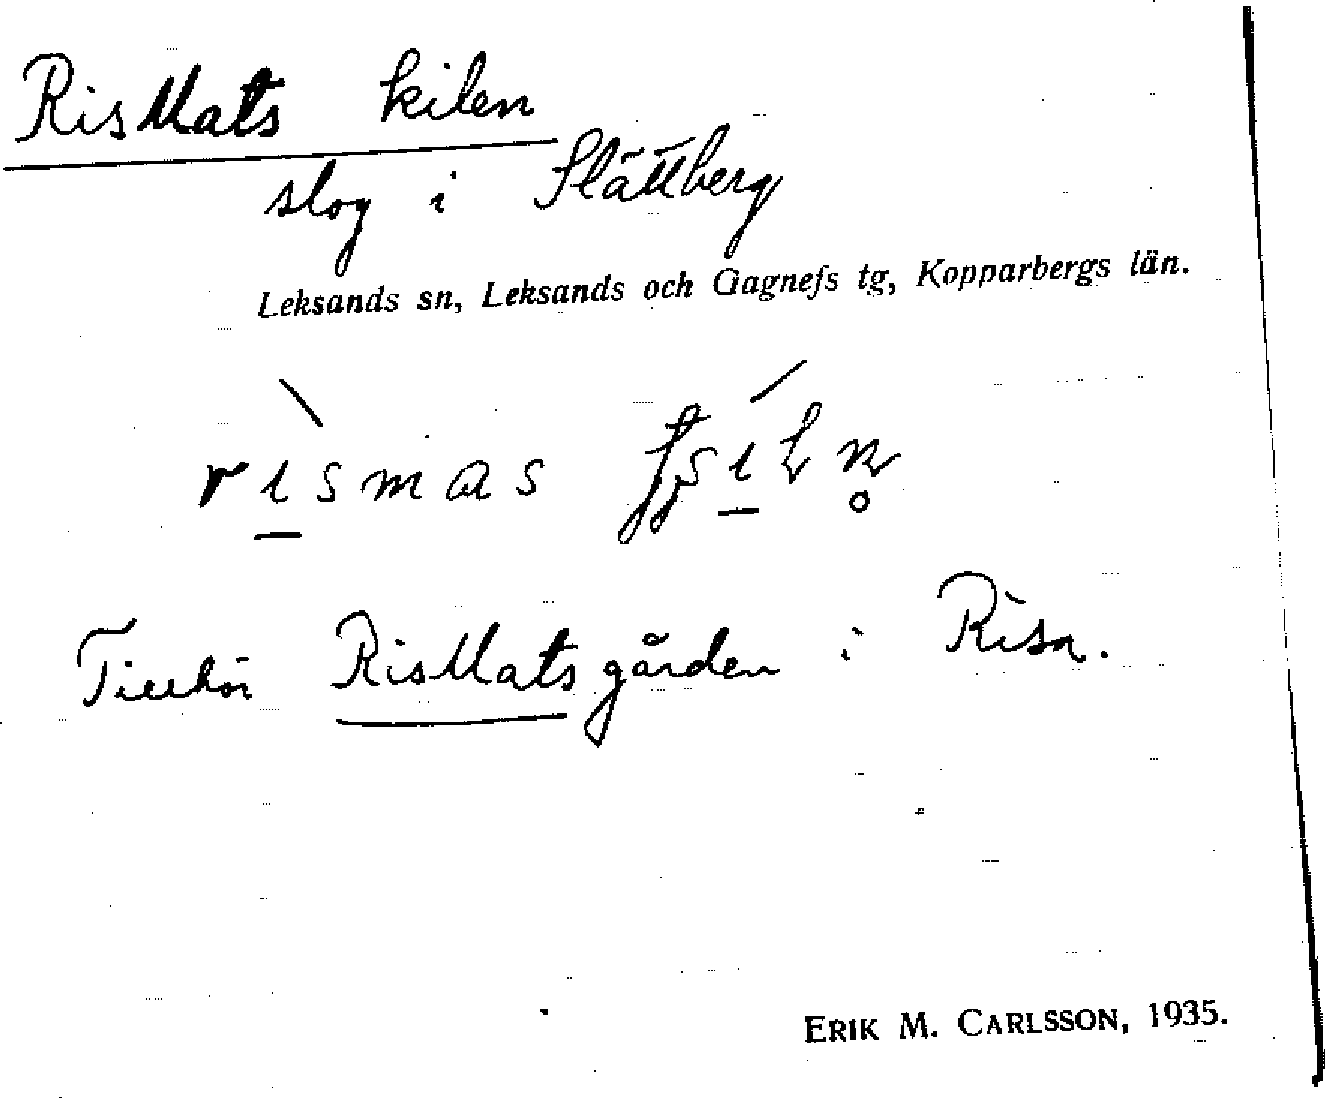 RisMats kilen
slog i Slättberg
Leksands sn, Leksands och Gagnefs tg, Kopparbergs län.
rismas
Tillhör RisMatsgården i Risa.
ERIK M. CARLSSON, 1935.